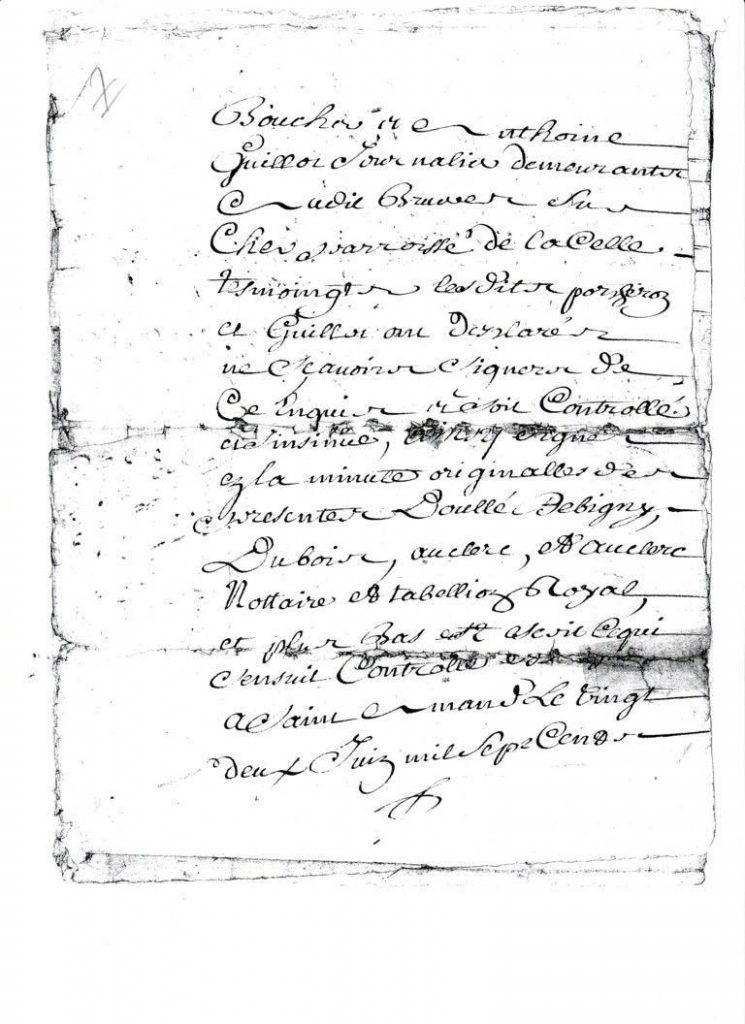 Boucher et Anthoine
Guillot Journalier demeurants
Audit Bruere sur
Cher parroisse de la Celle
tesmoingts lesdits
et Guillot ont desclarés
ne sçavoire signere de
Ce Enquis et soit Controllé
et insinué, signé
en la minute originalles des
presentes Doullé Debigny,
Dubois, auclerc, et auclerc
Nottaire et tabellion Royal,
et plus Bas est escrit Cequi
sensuit Controllé
a Saint Amand Le vingt
deux Juin mil Sept Cends